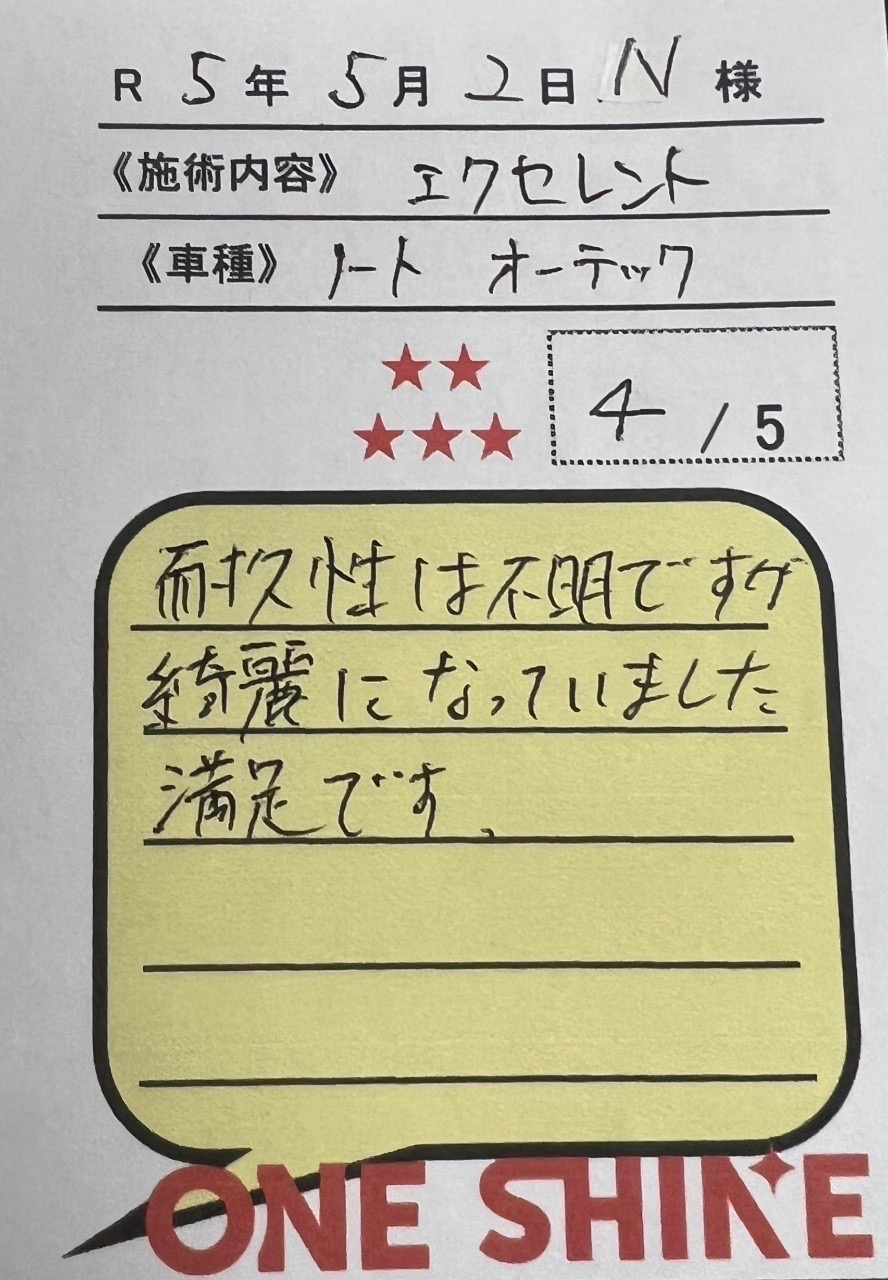 R 5年 5月 2日 N 様
《施術内容》 エクセレント
《車種》 ノート オーテック
★★
★★★
4 / 5
耐久性は不明ですが
綺麗になっていました
満足です、
ONE SHINE